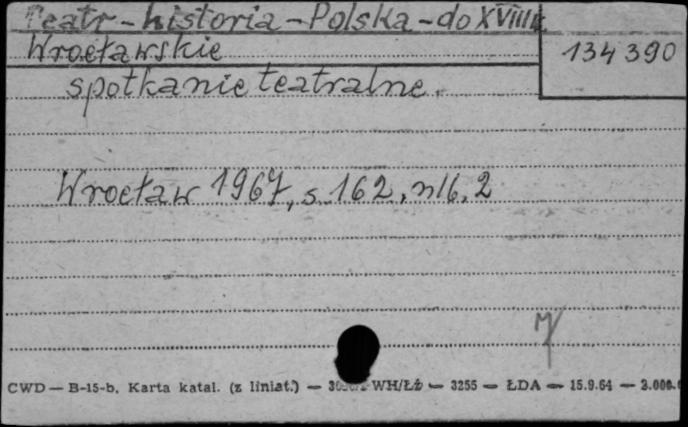 Teatr - historia - Polska - do XVIII w
Wrocławskie
134 390
spotkanie teatralne.
Wrocław 1967, s. 162, nlb. 2
CWD — B-15-b. Karta katal. (z liniat.) — WH/Łż — 3255 — ŁDA — 15.9.64 — 3.000.0